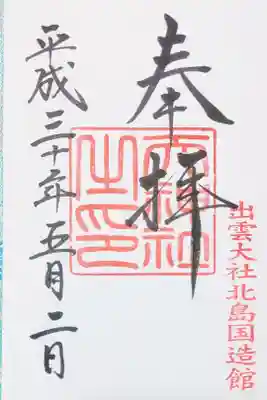 奉拝
出雲大社北島国造館
社
之印
平成三十年五月二日